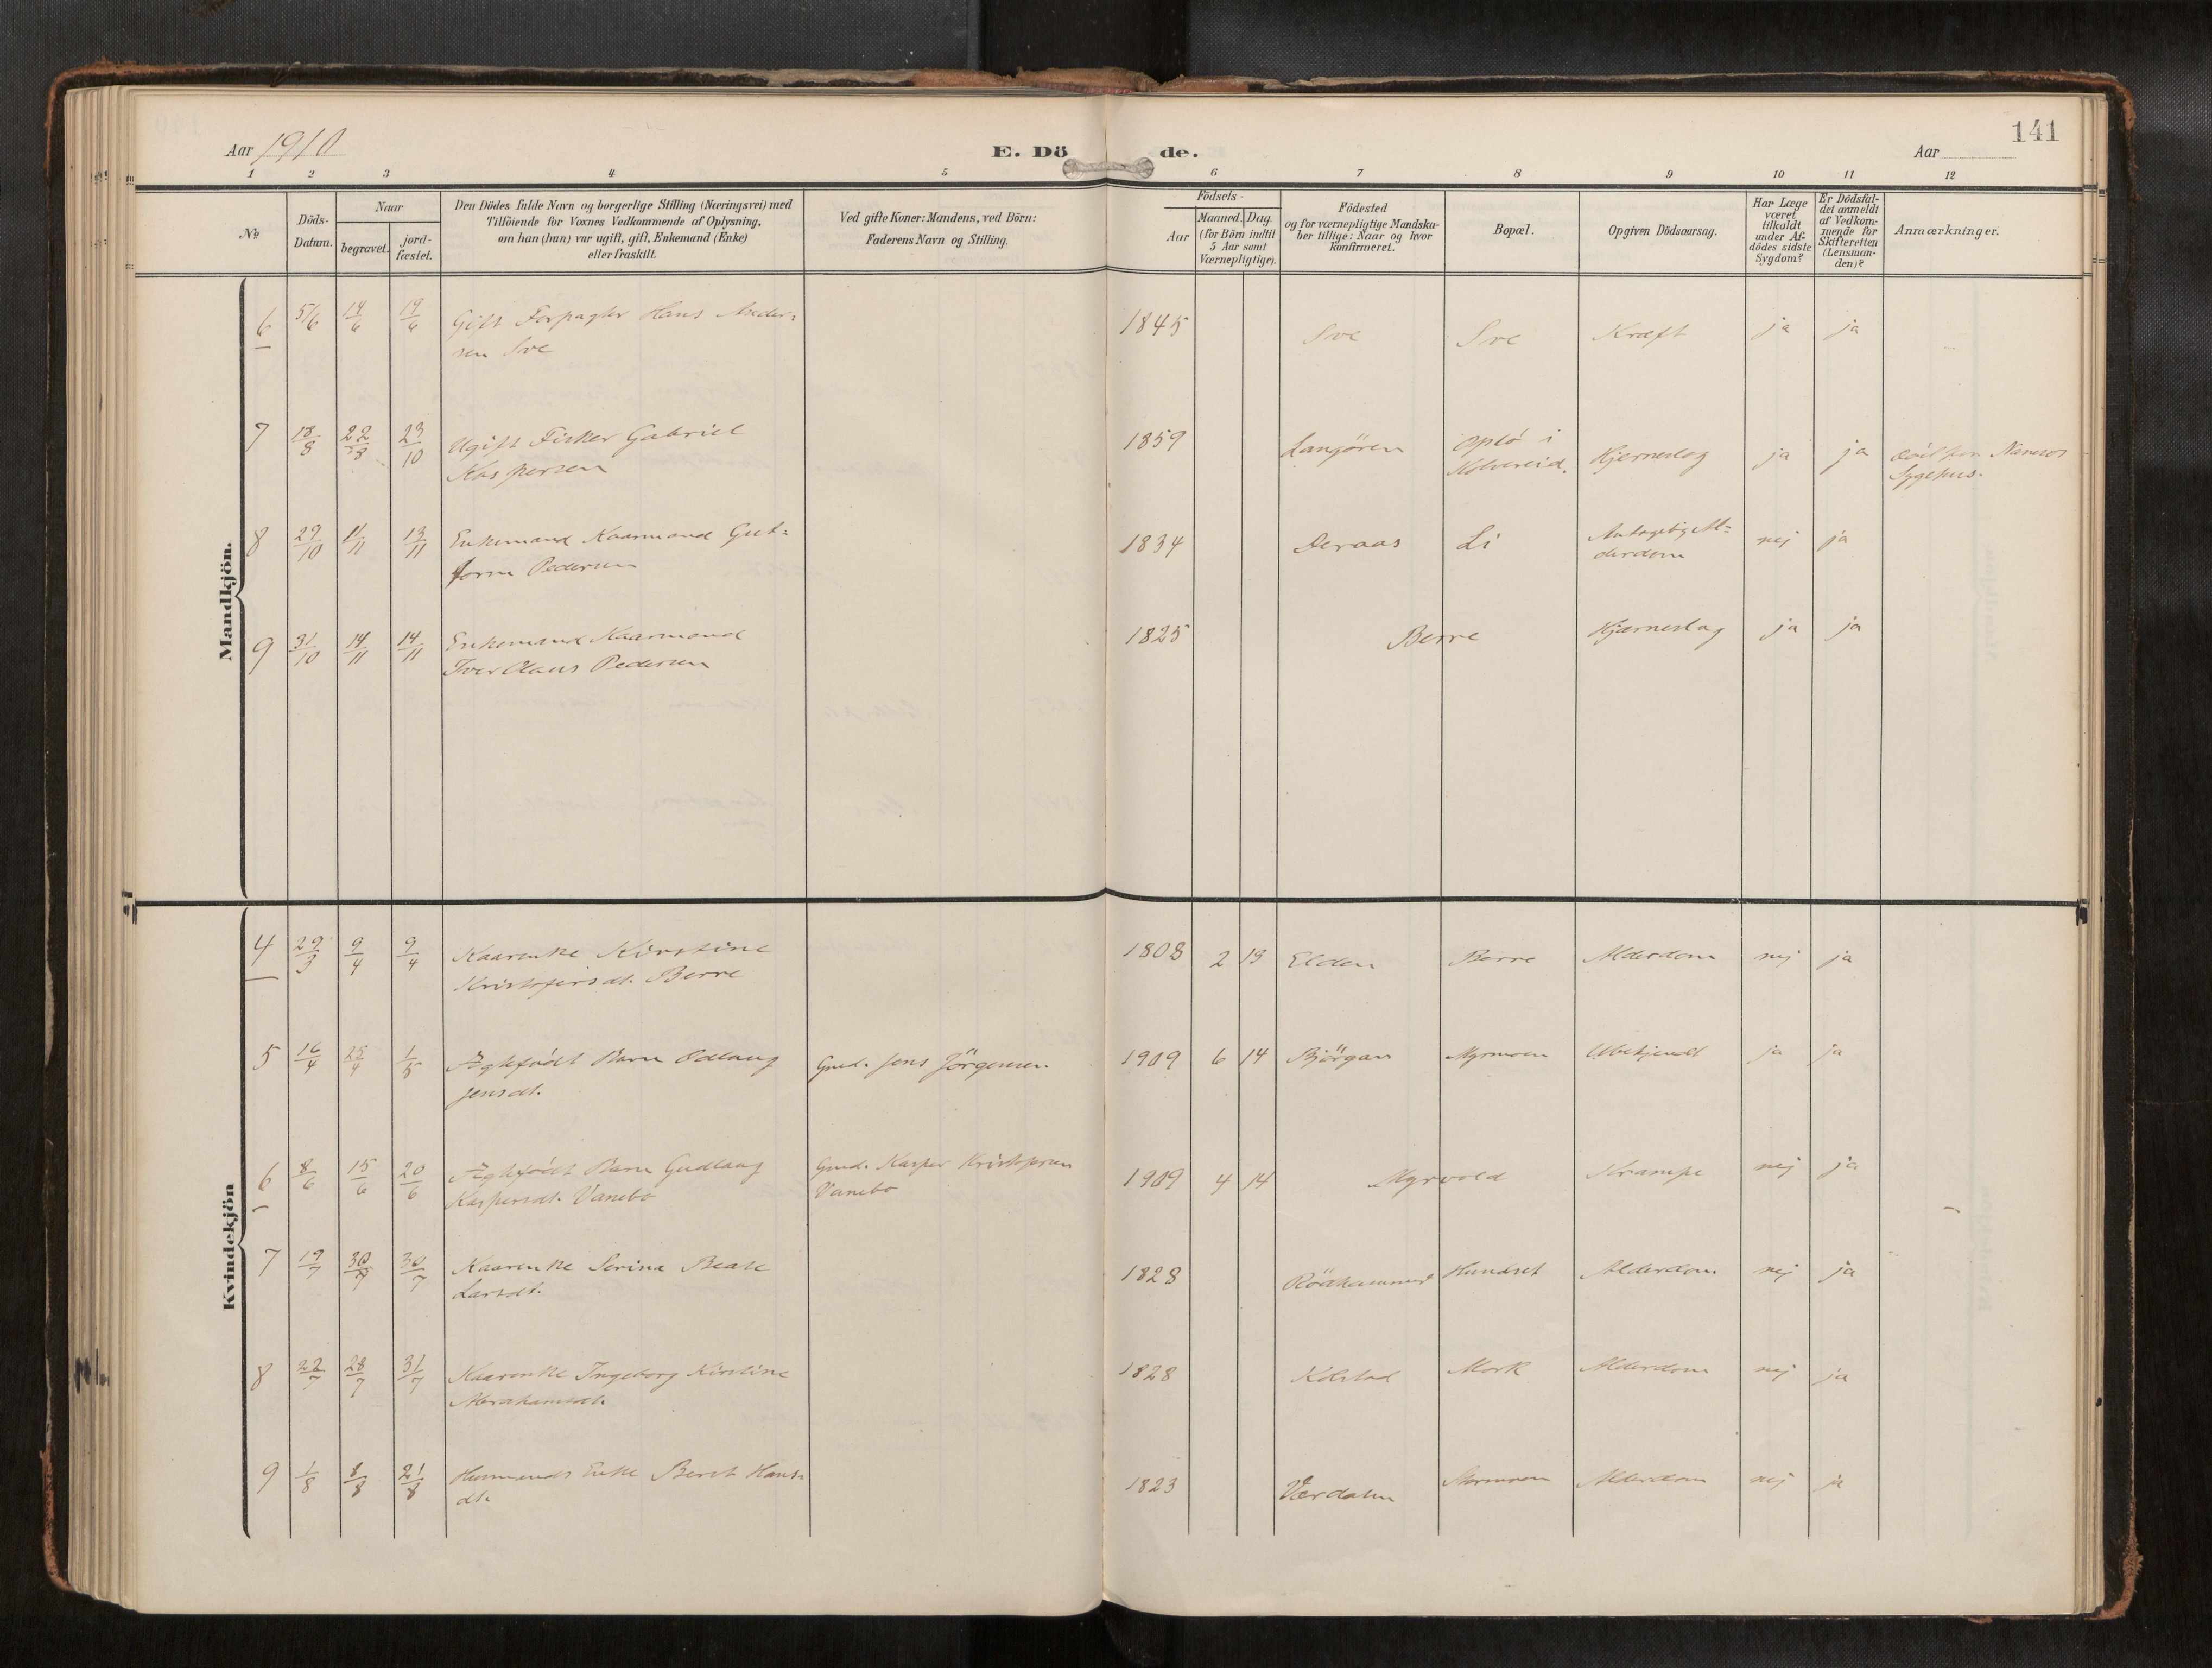 141
Aar 1910
E. Döde.
Aar
1 2 3 4 5 6 7 8 9 10 11 12
No
Döds-Datum.
Naar
begravet.
jord-fæstet.
Den Dödes fulde Navn og borgerlige Stilling (Næringsvei) med
Tilföiende for Voxnes Vedkommende af Oplysning,
om han (hun) var ugift, gift, Enkemand (Enke)
eller fraskilt.
Ved gifte Koner: Mandens, ved Börn:
Faderens Navn og Stilling.
Födsels-
Aar
Maaned. Dag.
(for Börn indtil
5 Aar samt
Værnepligtige).
Födested
og for værnepligtige Mandska-
ber tillige: Naar og hvor
konfirmeret.
Bopæl.
Opgiven Dödsaarsag.
Har Læge
været
tilkaldt
under Af-
dödes sidste
Sygdom?
Er Dödsfal-
det anmeldt
af Vedkom-
mende for
Skifteretten
(Lensman-
den)?
Anmærkninger.
Mandkjön.
6 5/6 14/6 19/6 Gift Forpagter Hans Ander= 1845 Sve Sve Kræft ja ja
sen Sve
7 18/8 22/8 23/10 Ugift Fisker Gabriel 1859 Langören Oplö i Hjerneslag ja ja död paa Namsos
Kaspersen Kolvereid. Sygehus.
8 29/10 11/11 13/11 Enkemand Kaarmand Gut= 1834 Aeraas Li Antagelig Al= nej ja
form Pedersen derdom
9 31/10 14/11 14/11 Enkemand Kaarmand 1825 Berre Hjerneslag ja ja
Iver Olaus Pedersen
Kvindekjön
4 29/3 9/4 9/4 Kaarenke Kirstine 1808 2 19 Elden Berre Alderdom nej ja
Kristofersdt. Berre
5 16/4 25/4 1/5 Ægtefødt Barn Odlaug Gmd. Jens Jörgensen. 1909 6 14 Bjørgan Myrmoen Ubekjendt ja ja
Jensdt.
6 8/6 15/6 20/6 Ægtefødt Barn Gudlaug Gmd. Kasper Kristofersen 1909 4 14 Myrvold Krampe nej ja
Kaspersdt. Vanebo Vanebo
7 19/7 30/7 30/7 Kaarenke Serina Beate 1828 Rödhammer Hundset Alderdom nej ja
Larsdt.
8 22/7 28/7 31/7 Kaarenke Ingeborg Kirstine 1828 Kolstad Mork Alderdom nej ja
Abrahamsdt.
9 1/8 8/8 21/8 Husmands Enke Beret Hans= 1823 Værdalen Alderdom nej ja
dt.